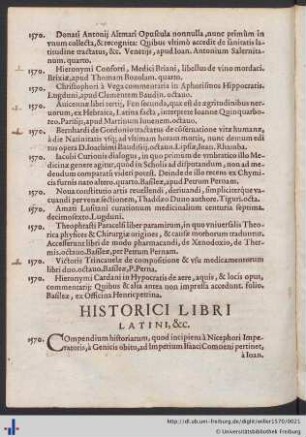 1570. Donati Antonij Altmari Opuscula nonnulla, nunc primùm in
vnum collecta, & recognita: Quibus vltimò accedit de sanitatis la-
titudine tractatus, &c. Venetijs, apud Ioan. Antonium Salernita-
num. quarto.
1570. Hieronymi Conforti, Medici Briani, libellus de vino mordaci.
Brixiæ, apud Thomam Bozolum. quarto.
1570. Christophori à Vega commentaria in Aphorismos Hippocratis.
Lugduni, apud Clementem Baudin. octauo.
1570. Auicennæ libri tertij, Fen secunda, quæ est de ægritudinibus ner-
uorum, ex Hebraica, Latina facta, interprete Ioanne Quinquarbo-
reo. Parisijs, apud Martinum Iuuenem. octauo.
1570. Bernhardi de Gordonio tractatus de cõseruatione vitæ humanæ,
à die Natiuitatis vsq; ad vltimam horam mortis, nunc demum edi-
tus opera D. Ioachimi Baudisij. octauo. Lipsiæ, Ioan. Rhamba.
1570. Iacobi Curionis dialogus, in quo primùm de vmbratico illo Me-
dicinæ genere agitur, quod in Scholis ad disputandum, non ad me-
dendum comparatũ videri potest. Deinde de illo recens ex Chymi-
cis furnis nato altero. quarto. Basileæ, apud Petrum Pernam.
1570. Nota constitutio artis reuellendi, deriuandi, simpliciterque va-
cuandi per venæ sectionem, Thaddæo Duno authore. Tiguri. octa.
1570. Amati Lusitani curationum medicinalium centuria septima.
decimosexto. Lugduni.
1570. Theophrasti Paracelsi liber paramirum, in quo vniuersalis Theo-
rica physices & Chirurgiæ origines, & causæ morborum traduntur.
Accesserunt libri de modo pharmacandi, de Xenodoxio, de Ther-
mis. octauo. Basileæ, per Petrum Pernam.
1570. Victoris Trincauelæ de compositione & vsu medicamentorum
libri duo. octauo. Basileæ, P. Perna.
1570. Hieronymi Cardani in Hypocratis de aere, aquis, & locis opus,
commentarij: Quibus & alia antea non impressa accedunt. folio.
Basileæ, ex Officina Henricpetrina.
HISTORICI LIBRI
LATINI, &c.
1570. COmpendium historiarum, quod incipiens à Nicephori Impe-
ratoris, à Genicis obitu, ad Imperium Isaaci Comneni pertinet,
à Ioan.
http://dl.ub.uni-freiburg.de/diglit/willer1570/0021
© Universitätsbibliothek Freiburg